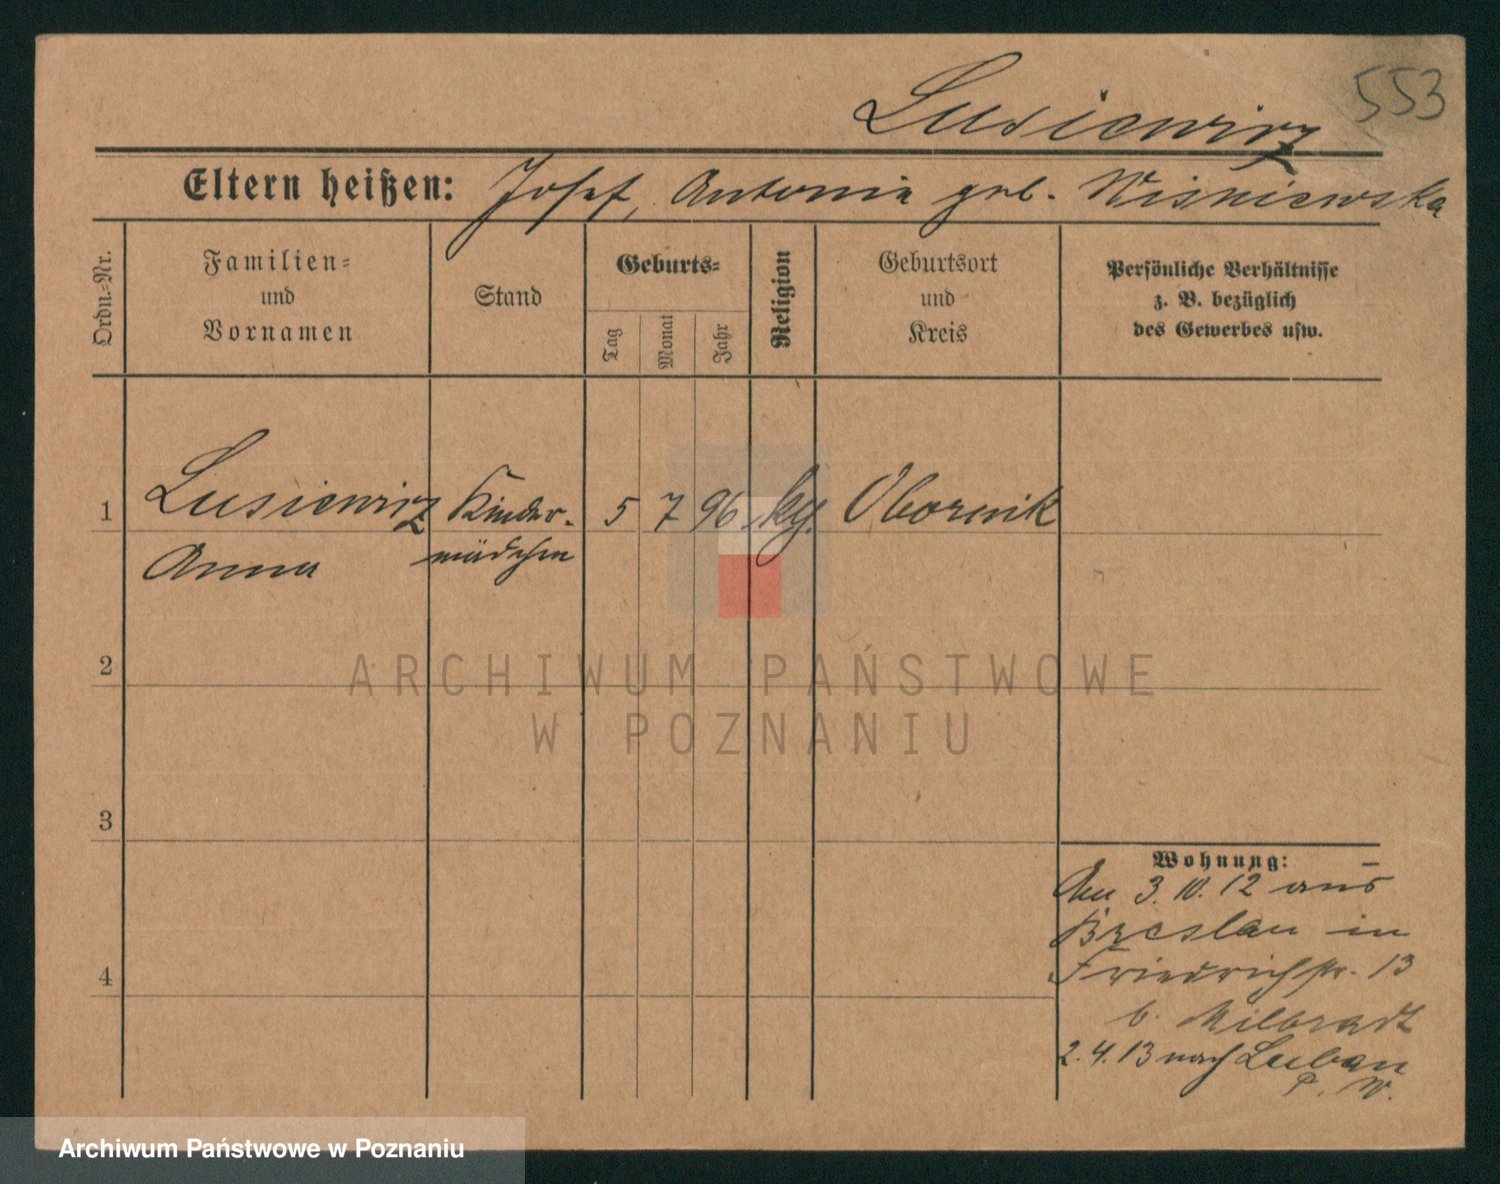 553
Lusiewicz
Eltern heißen: Josef, Antonie geb. Wisniewska
Ordn.-Nr.
Familien- und Vornamen
Stand
Geburts-
Tag
Monat
Jahr
Religion
Geburtsort und Kreis
Persönliche Verhältnisse
z. B. bezüglich
des Gewerbes usw.
1 Lusiewicz Kinder- 5 7 96 kg. Obornik
Anna mädchen
2
3
4
Wohnung:
An 3.10.12 aus
Breslau in
Friedrichstr. 13
b. Milbradt
2.4.13 nach Luban
P. W.
ARCHIWUM PAŃSTWOWE
W POZNANIU
Archiwum Państwowe w Poznaniu